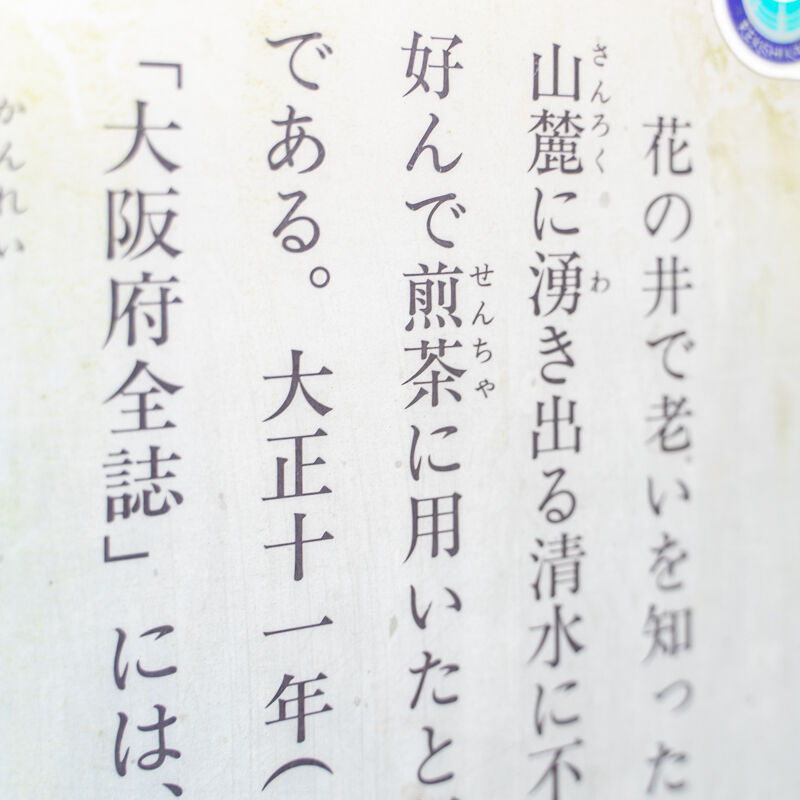 花の井で老いを知った
さんろく わ
山麓に湧き出る清水に不
せんちゃ
好んで煎茶に用いたと
である。 大正十一年(
「大阪府全誌」には、
かんれい